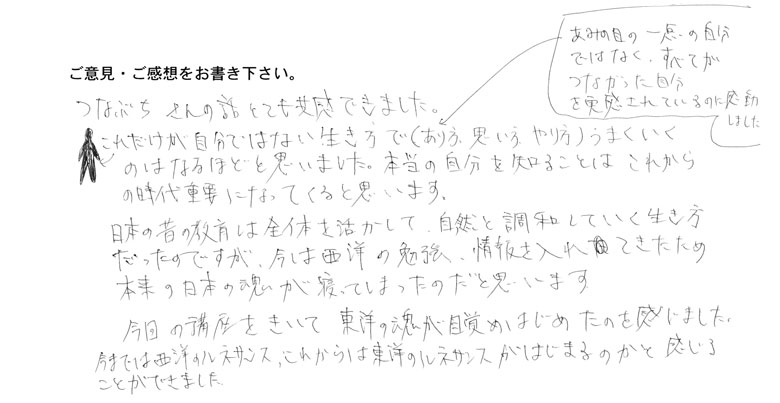 ご意見・ご感想をお書き下さい。
あみの目の一点の自分
ではなく、すべてが
つながった自分
を実感されているのに感動
しました
つなぶちさんの話とても共感できました。
これだけが自分ではない生き方で(あり方、思い方、やり方)うまくいく
のはなるほどと思いました。本当の自分を知ることはこれから
の時代重要になってくると思います。
日本の昔の教育は全体を活かして、自然と調和していく生き方
だったのですが、今は西洋の勉強、情報を入れてきたため
本来の日本の魂が寝ってしまったのだと思います
今回の講座をきいて東洋の魂が目覚めはじめたのを感じました、
今までは西洋のルネサンス、これからは東洋のルネサンスがはじまるのかと感じる
ことができました